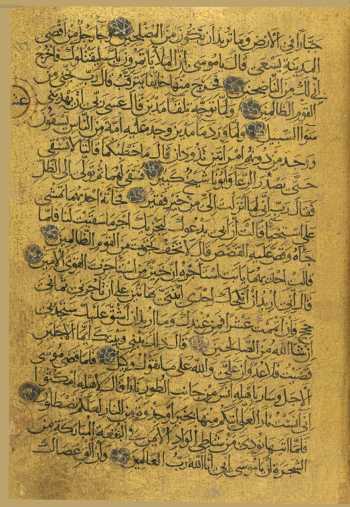 جبارا في الأرض وما تريد أن تكون من المصلحين وجاء رجل من أقصى
المدينة يسعى قال يا موسى إن الملأ يأتمرون بك ليقتلوك فاخرج
إني لك من الناصحين فخرج منها خائفا يترقب قال رب نجني من
القوم الظالمين ولما توجه تلقاء مدين قال عسى ربي أن يهديني
سواء السبيل ولما ورد ماء مدين وجد عليه أمة من الناس يسقون
ووجد من دونهم امرأتين تذودان قال ما خطبكما قالتا لا نسقي
حتى يصدر الرعاء وأبونا شيخ كبير فسقى لهما ثم تولى إلى الظل
فقال رب إني لما أنزلت إلي من خير فقير فجاءته إحداهما تمشي
على استحياء قالت إن أبي يدعوك ليجزيك أجر ما سقيت لنا فلما
جاءه وقص عليه القصص قال لا تخف نجوت من القوم الظالمين
قالت إحداهما يا أبت استأجره إن خير من استأجرت القوي الأمين
قال إني أريد أن أنكحك إحدى ابنتي هاتين على أن تأجرني ثماني
حجج فإن أتممت عشرا فمن عندك وما أريد أن أشق عليك ستجدني
إن شاء الله من الصالحين قال ذلك بيني وبينك أيما الأجلين
قضيت فلا عدوان علي والله على ما نقول وكيل فلما قضى موسى
الأجل وسار بأهله آنس من جانب الطور نارا قال لأهله امكثوا
إني آنست نارا لعلي آتيكم منها بخبر أو جذوة من النار لعلكم تصطلون
فلما أتاها نودي من شاطئ الواد الأيمن في البقعة المباركة من
الشجرة أن يا موسى إني أنا الله رب العالمين وأن ألق عصاك